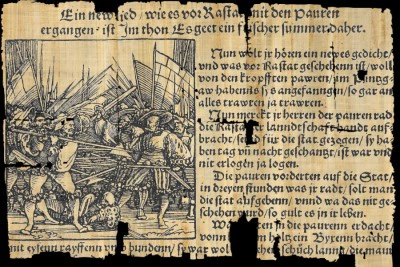 Ein new lied/ wie es vor Rastat mit den Pauren
ergangen ist Im thon Es geet ein frischer summer daher.
Nun wolt jr hören ein newes gedicht/
vnd was vor Rastat geschehenn ist/ woll
von den kropfften pawren/ jm Pintzg
aw habenn is s angefanngen/ so gar an
alles trawren ja trawren.
Nun merckt jr herren der pauren rad
die Rastater lanndtschafft haudt auf
bracht/ send für die stat gezogen/ sy ha
ben tag vñ nacht geschanzt/ ist war vnd
nit erlogen ja logen.
Die pauren vorderten auf die Stat/
in dreyen stunden was jr radt/ solt man
die stat aufgebenn/ vnnd wa das nit ge
schehen wurd/ so gult es in jr leben.
Wa in die paurenn erdacht/
vonn holtz ein Byrenn bracht/
mit eylenn rayffenn vnd bundenn/ sy
war wol schüch lannd/ die maur